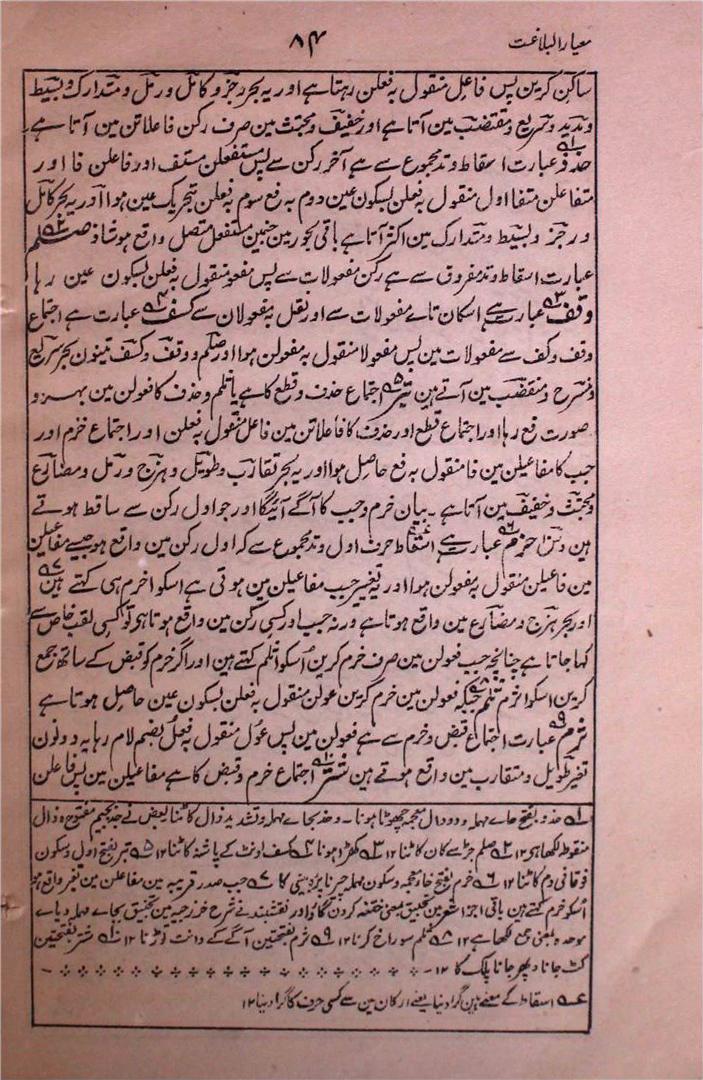 معیار البلاغت
۸۴
ساکن کرین پس فاعِل منقول بہ فعلن رہتا ہے اور یہ بحر رجز و کامل و رمل و متدارک و بسیط
و مدید و سریع و مقتضب مین آتا ہے اور خفیف و مجتث مین صرف رکن فاعلاتن مین آتا ہے
حذذ عبارت اسقاط وتد مجموع سے ہے آخر رکن سے پس مستفعلن مستف اور فاعلن فا اور
متفاعلن متفا اول منقول بہ فعلن بسکون عین دوم بہ فع سوم بہ فعلن بتحریک عین ہوا اور یہ بحر کامل
و رجز و بسیط و متدارک مین اکثر آتا ہے باقی بحور مین جنمین مستفعلن متصل واقع ہو شاذ صلم
عبارت اسقاط وتد مفروق سے ہے رکن مفعولات سے پس مفعو منقول بہ فعلن بسکون عین رہا
وقف عبارت ہے اسکان تاے مفعولات سے اور نقل بہ مفعولان سے کسف عبارت ہے اجتماع
وقف و کف سے مفعولات مین پس مفعولا منقول بہ مفعولن ہوا اور صلم و وقف و کسف تینون بحر سریع
و منسرح و مقتضب مین آتے ہین بتر اجتماع حذف و قطع کا ہے یا ثلم و حذف کا فعولن مین بہر دو
صورت فع رہا اور اجتماع قطع اور حذف کا فاعلاتن مین فاعل منقول بہ فعلن اور اجتماع خرم اور
جب کا مفاعیلن مین فا منقول بہ فع حاصل ہوا اور یہ بحر تقارب و طویل و ہزج و رمل و مضارع
و مجتث و خفیف مین آتا ہے ۔ بیان خرم و جب کا آگے آئیگا اور جو اول رکن سے ساقط ہوتے
ہین خرم عبارت ہے اسقاط حرف اول وتد مجموع سے کہ اول رکن مین واقع ہو جیسے مفاعیلن
مین فاعیلن منقول بہ مفعولن ہوا اور یہ تغییر جب مفاعیلن مین ہوتی ہے اسکو اخرم ہی کہتے ہین
اور بحر ہزج و مضارع مین واقع ہوتا ہے ورنہ جب اور کسی رکن مین واقع ہوتا ہی تو کسی لقب خاص سے
کہا جاتا ہے چنانچہ جب فعولن مین صرف خرم کرین اُسکو اثلم کہتے ہین اور اگر خرم کو قبض کے ساتھ جمع
کرین اسکو اثرم ثلم جبکہ فعولن مین خرم کرین عولن منقول بہ فعلن بسکون عین حاصل ہوتا ہے
ثرم عبارت اجتماع قبض و خرم سے ہے فعولن مین پس عول منقول بہ فعل بضم لام رہا یہ دونون
تغیر طویل و متقارب مین واقع ہوتے ہین شتر اجتماع خرم و قبض کا ہے مفاعیلن مین پس فاعلن
۱ حذذ بفتح حاے مہملہ و دو ذال معجمہ چھوٹا ہونا ۔ و حذ بحاے مہملہ و تشدید ذال کاٹنا بعض نے جذ بجیم مفتوح و ذال
منقوط لکھا ہی ۱۲ ۲ صلم جڑ سے کان کاٹنا ۱۲ ۳ کھڑا ہونا ۴ کسف اونٹ کے پاشنہ کاٹنا ۱۲ ۵ بتر بفتح اول و سکون
فوقانی دم کاٹنا ۱۲ ۶ خرم بفتح خاء معجمہ و سکون مہملہ چیرنا پرۂ بینی کا ۷ جب صدر مین مفاعلن مین تغیر واقع ہو
اُسکو خرم کہتے ہین باقی اجزا شعر مین تخنیق بمعنی خفہ کردن گلو اور نقشبند نے شرح خزرجیہ مین تحبیق بحاے مہملہ و باے
موحدہ بمعنی جمع لکھا ہے ۱۲ ۸ ثلم سوراخ کرنا ۱۲ ۹ ثرم بفتحتین آگے کے دانت توڑنا ۱۲ ۱۰ شتر بفتحتین
کٹ جانا و پھر جانا پلک کا ۱۲
عہ اسقاط کے معنے ہین گرا دینا یعنے ارکان مین سے کسی حرف کا گرا دینا ۱۲